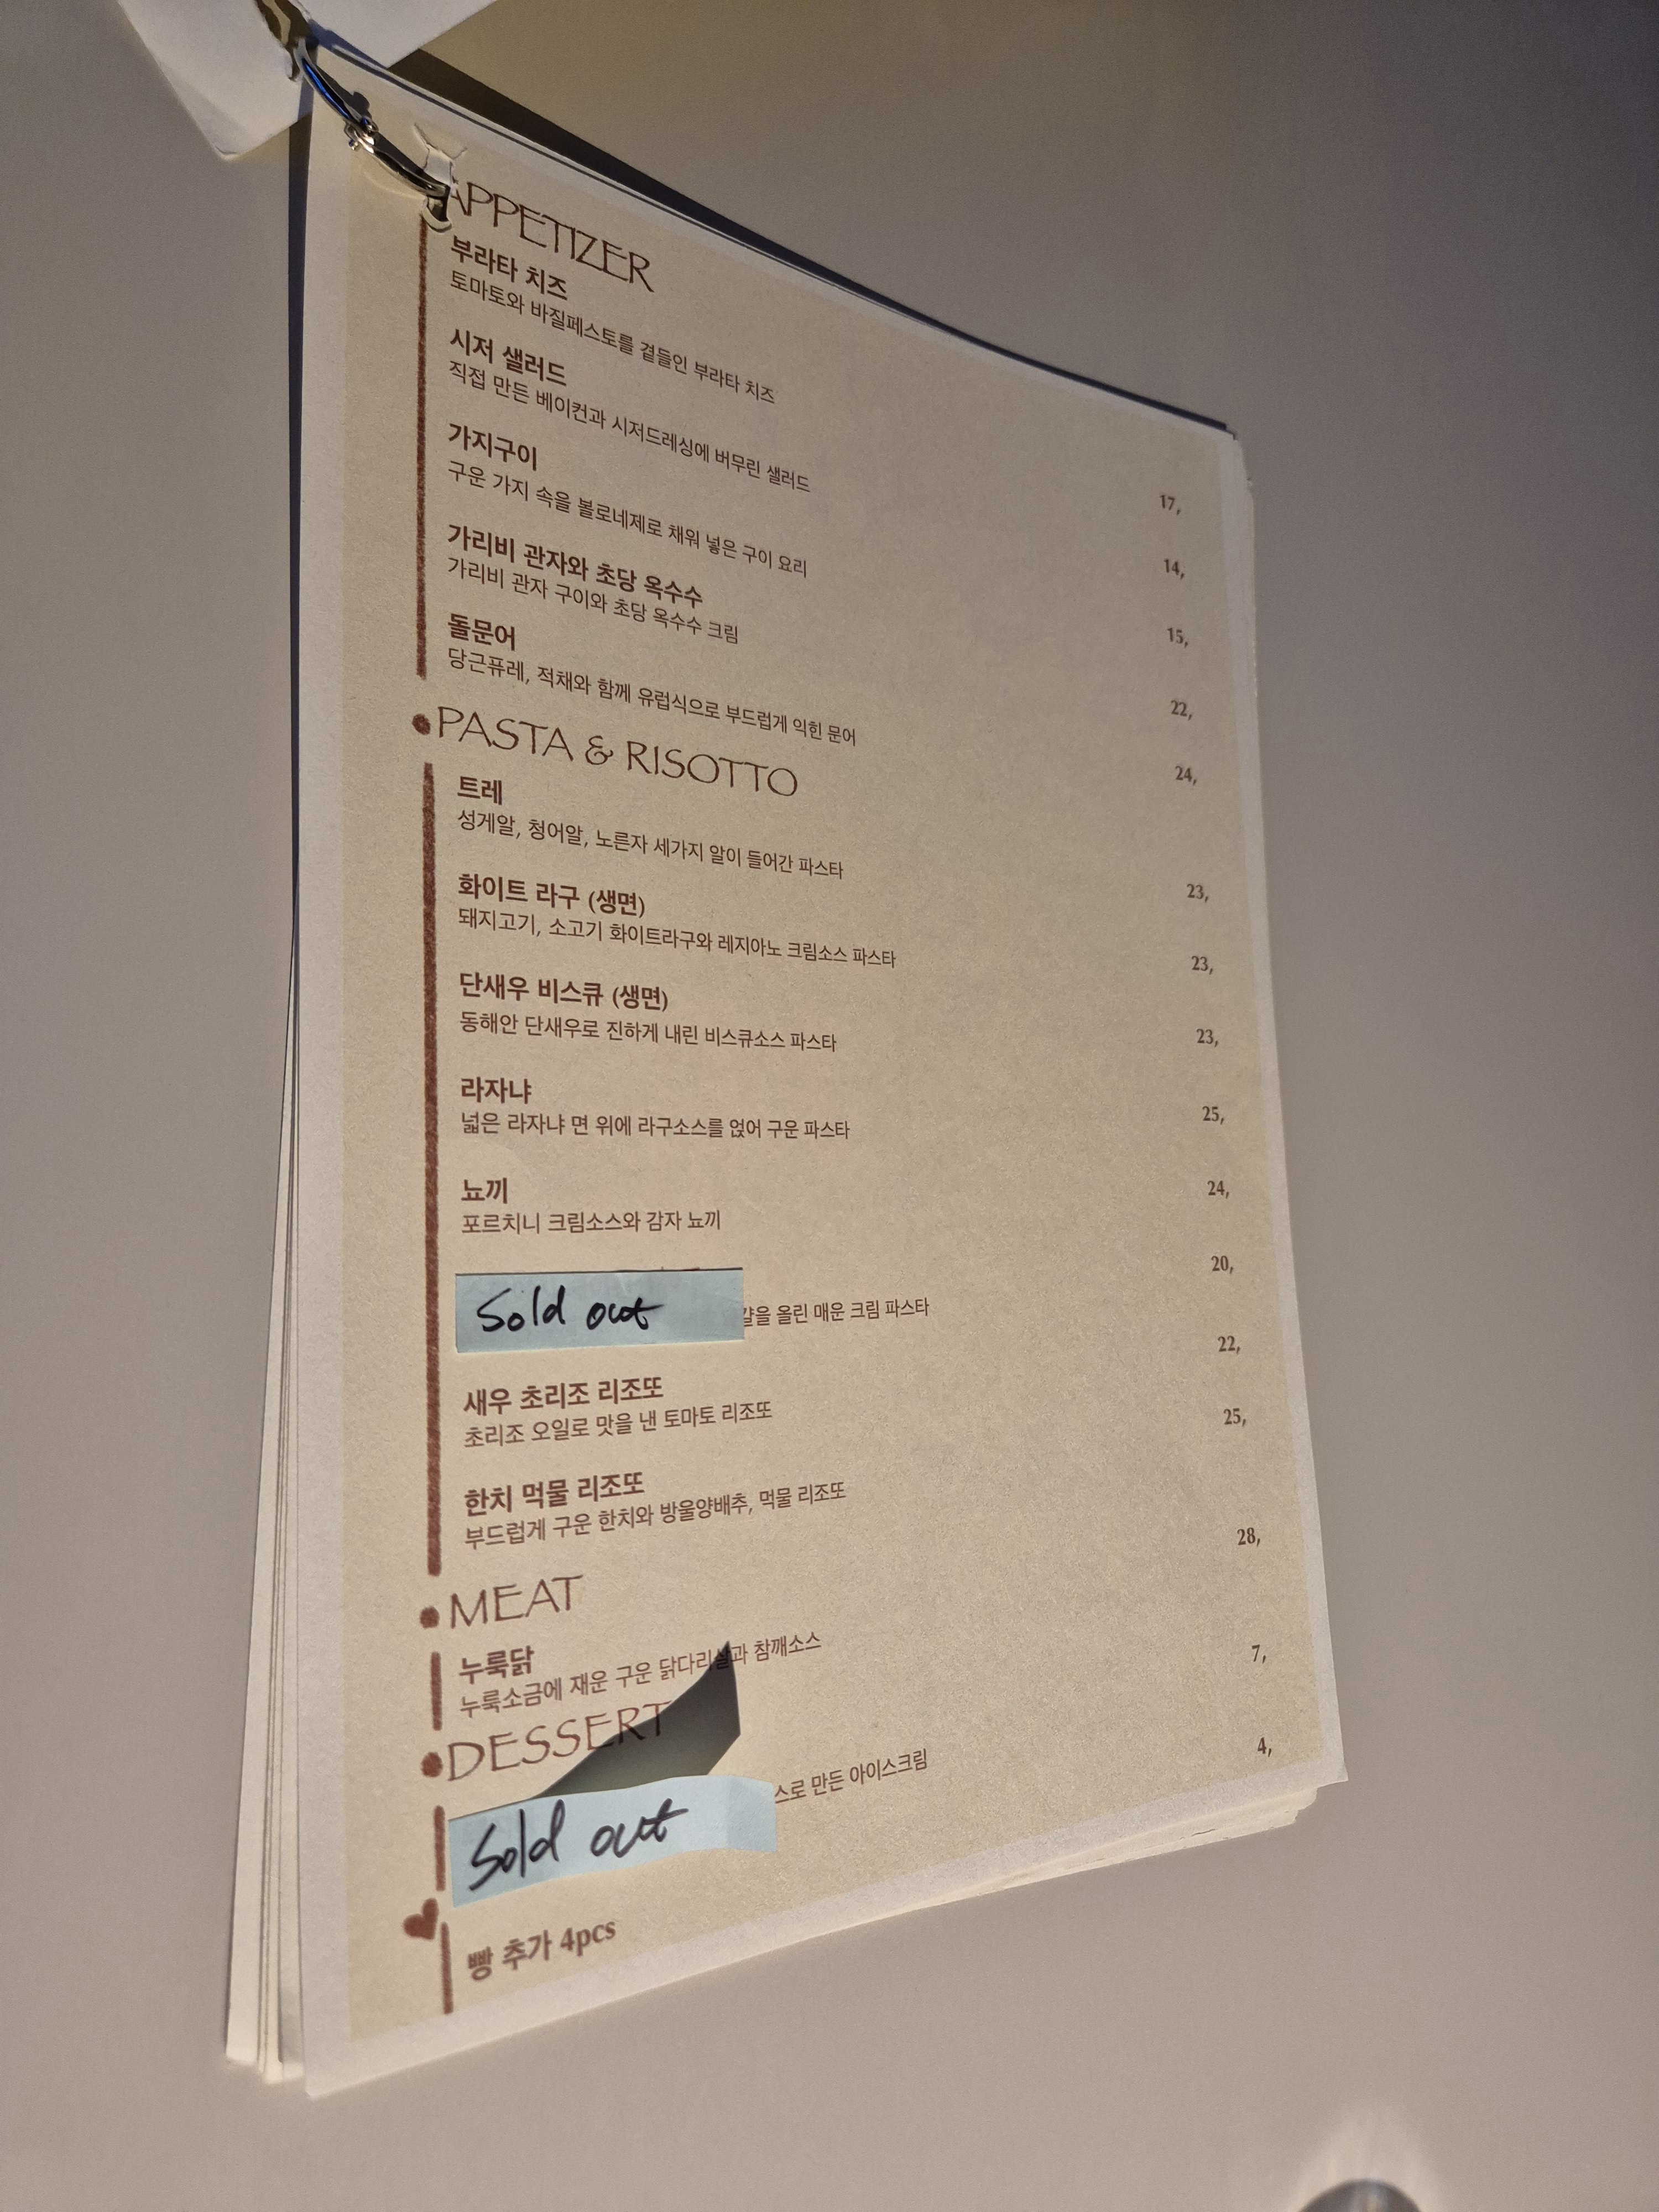 APPETIZER
부라타 치즈 17,
토마토와 바질페스토를 곁들인 부라타 치즈
시저 샐러드 14,
직접 만든 베이컨과 시저드레싱에 버무린 샐러드
가지구이 15,
구운 가지 속을 볼로네제로 채워 넣은 구이 요리
가리비 관자와 초당 옥수수 22,
가리비 관자 구이와 초당 옥수수 크림
돌문어 24,
당근퓨레, 적채와 함께 유럽식으로 부드럽게 익힌 문어
PASTA & RISOTTO
트레 23,
성게알, 청어알, 노른자 세가지 알이 들어간 파스타
화이트 라구 (생면) 23,
돼지고기, 소고기 화이트라구와 레지아노 크림소스 파스타
단새우 비스큐 (생면) 23,
동해안 단새우로 진하게 내린 비스큐소스 파스타
라자냐 25,
넓은 라자냐 면 위에 라구소스를 얹어 구운 파스타
뇨끼 24,
포르치니 크림소스와 감자 뇨끼
Sold out 20,
을 올린 매운 크림 파스타
새우 초리조 리조또 22,
초리조 오일로 맛을 낸 토마토 리조또
한치 먹물 리조또 25,
부드럽게 구운 한치와 방울양배추, 먹물 리조또
MEAT
누룩닭 28,
누룩소금에 재운 구운 닭다리살과 참깨소스
DESSERT
Sold out 7,
스로 만든 아이스크림
빵 추가 4pcs 4,